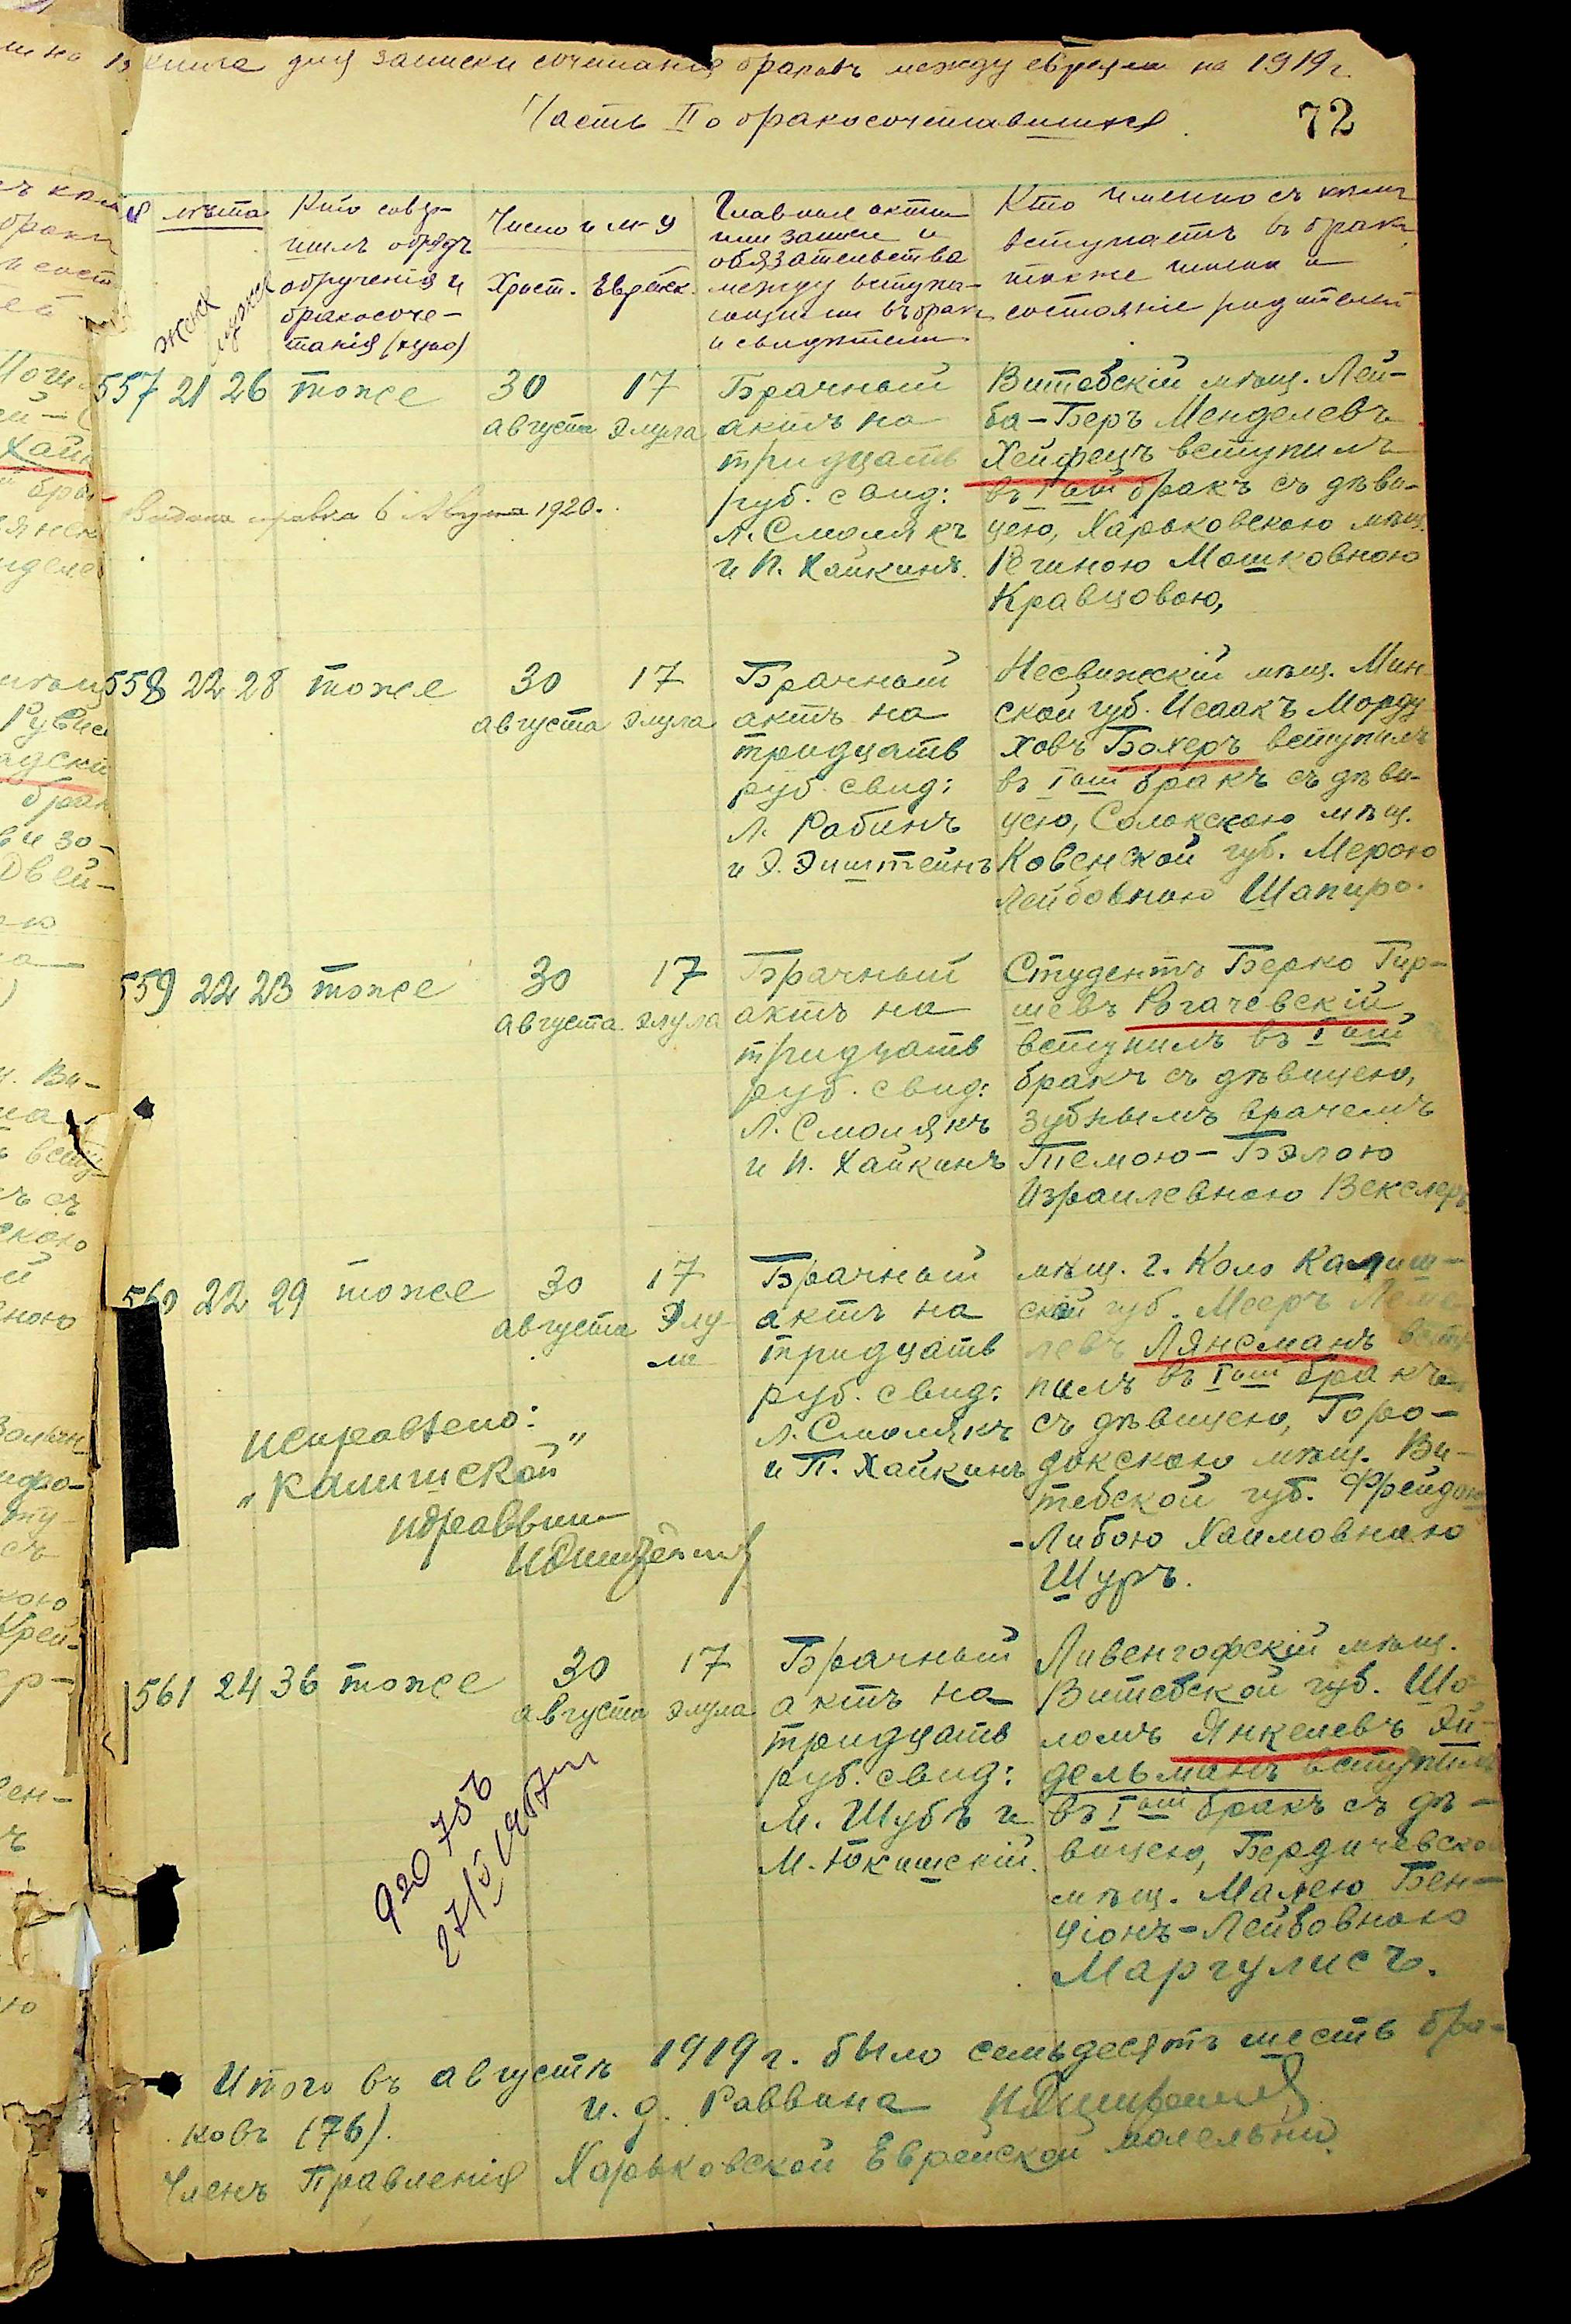 книга для записки сочитанія браковъ между евреями на 1919 г.
Часть II о бракосочетавшихся
72
№ лѣта
жена мужа
Кто совер-
шилъ обрядъ
обрученія и
бракосоче-
танія (хупо)
Число и м-ц
Христ. Еврейск.
Главные акты
или записи и
обязательства
между вступа-
ющими въ бракъ
и свидѣтели
Кто именно съ кѣмъ
вступаетъ въ бракъ,
также имена и
состояніе родителей
557 21 26 тоже
30 августа
17 Элула
Брачный
актъ на
тридцать
руб. свид:
Л. Смолякъ
и П. Хайкинъ.
Витебскій мѣщ. Лей-
ба-Беръ Менделевъ
Хейфецъ вступилъ
въ Iый бракъ съ дѣви-
цею, Харьковскою мѣщ.
Региною Мошковною
Кравцовою,
Выдана справка 6 Августа 1920.
558 22 28 тоже
30 августа
17 Элула
Брачный
актъ на
тридцать
руб. свид:
Л. Рабинъ
и Э. Эпштейнъ
Несвижскій мѣщ. Мин-
ской губ. Исаакъ Морду
ховъ Бохеръ вступилъ
въ Iый бракъ съ дѣви-
цею, Солокскою мѣщ.
Ковенской губ. Мерою
Лейбовною Шапиро.
559 22 23 тоже
30 августа
17 Элула
Брачный
актъ на
тридцать
руб. свид:
Л. Смолякъ
и П. Хайкинъ
Студентъ Берко Гир-
шевъ Рогачевскій
вступилъ въ Iый
бракъ съ дѣвицею,
зубнымъ врачемъ
Темою-Бэлою
Израилевною Векслеръ
560 22 29 тоже
30 августа
17 Элу-
ла
Брачный
актъ на
тридцать
руб. свид:
Л. Смолякъ
и П. Хайкинъ
мѣщ. г. Коло Калиш-
ской губ. Мееръ
левъ Лянсманъ всту
пилъ въ Iый бракъ
съ дѣвицею, Горо-
докскою мѣщ. Ви-
тебской губ. Фрейдою
-Либою Хаимовною
Шуръ.
исправлено:
„Калишской"
561 24 36 тоже
30 августа
17 Элула
Брачный
актъ на
тридцать
руб. свид:
М. Шубъ и
М. Юкишскій.
Ливенгофскій мѣщ.
Витебской губ. Шо
ломъ Янкелевъ Эй-
дельманъ вступилъ
въ Iый бракъ съ дѣ-
вицею, Бердичевско
мѣщ. Малею Бен-
ціонъ-Лейбовною
Маргулисъ.
920 756
27/5 1957
Итого въ августѣ 1919 г. было семьдесятъ шесть бра-
ковъ (76).
и. д. Раввина
Членъ Правленія Харьковской Еврейской молельни